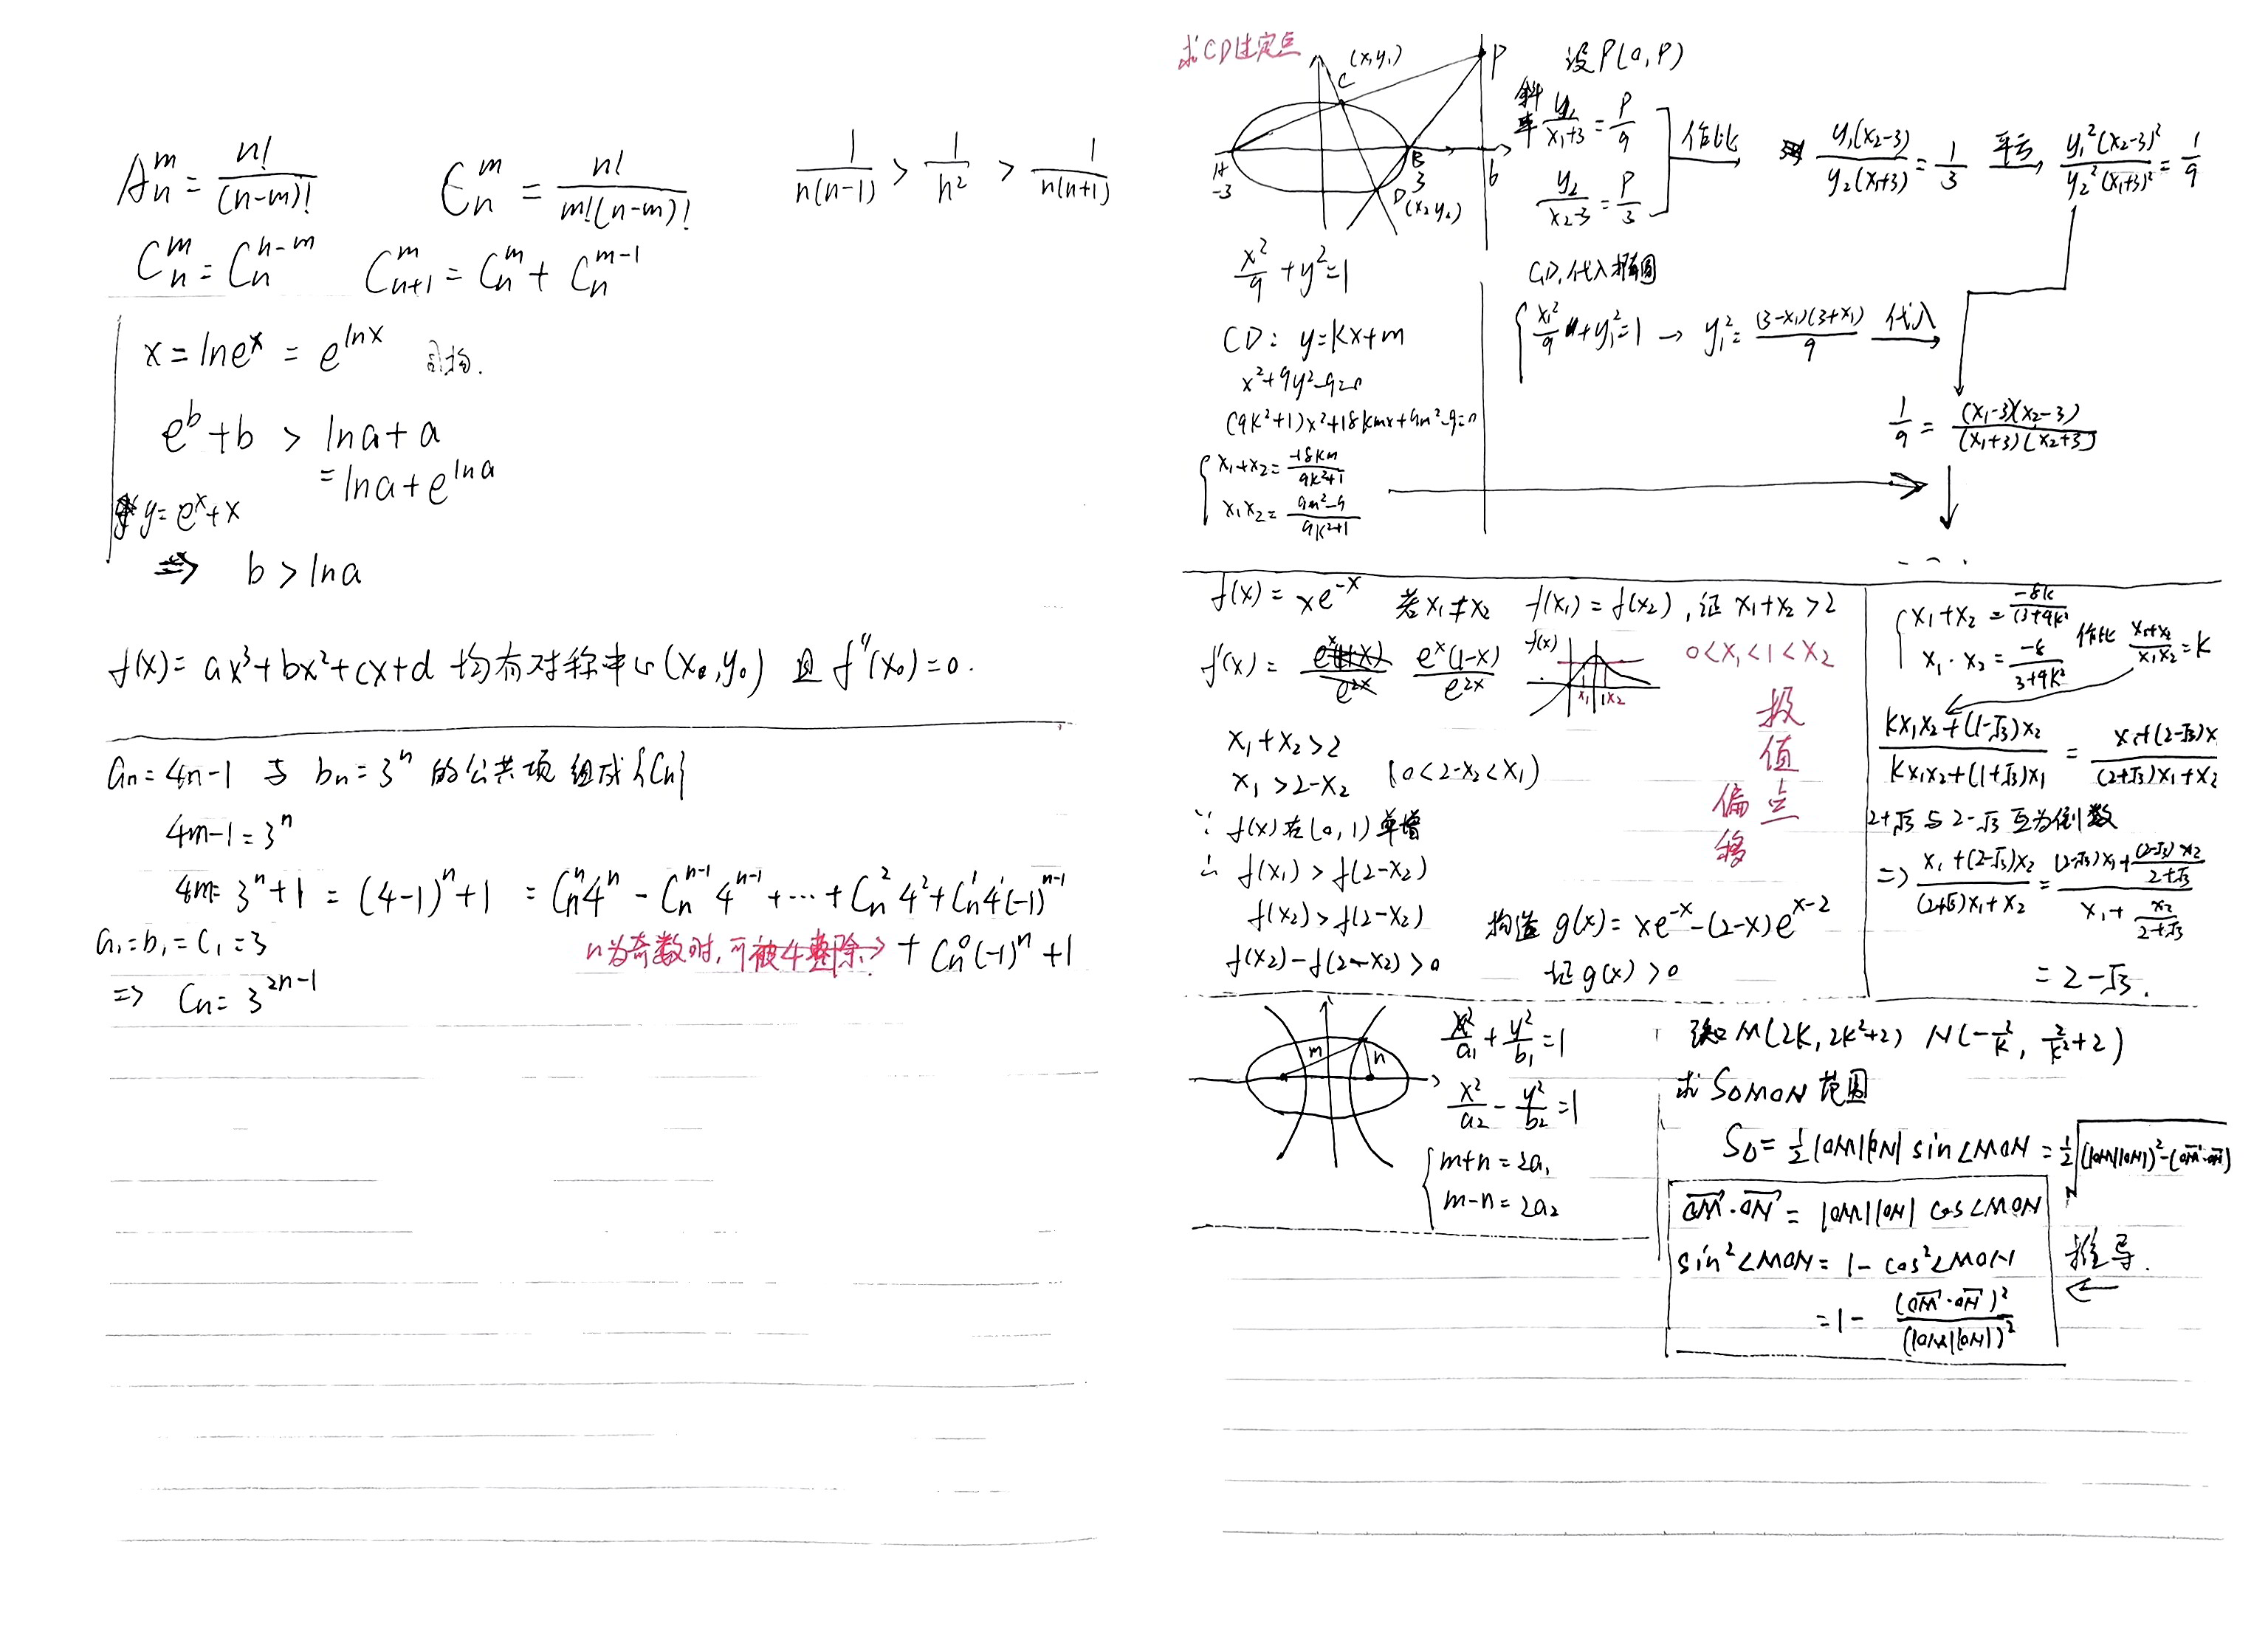 Aₙᵐ = n!/(n-m)!   Cₙᵐ = n!/(m!(n-m)!)   1/(n(n-1)) > 1/n² > 1/(n(n+1))
Cₙᵐ = Cₙⁿ⁻ᵐ   Cₙ₊₁ᵐ = Cₙᵐ + Cₙᵐ⁻¹
x = lneˣ = e^(lnx) 同构.
eᵇ+b > lna+a
= lna+e^(lna)
y=eˣ+x
⇒ b>lna
f(x)= ax³+bx²+cx+d 均有对称中心(x₀,y₀) 且 f''(x₀)=0.
aₙ=4n-1 与 bₙ=3ⁿ 的公共项 组成{Cₙ}
4m-1=3ⁿ
4m= 3ⁿ+1 = (4-1)ⁿ+1 = Cₙⁿ4ⁿ - Cₙⁿ⁻¹4ⁿ⁻¹+…+Cₙ²4²+Cₙ¹4¹(-1)ⁿ⁻¹
+ Cₙ⁰(-1)ⁿ+1
n为奇数时,可被4整除
a₁=b₁=C₁=3
⇒ Cₙ= 3²ⁿ⁻¹
求CD过定点
(x₁y₁)
C
P
A
-3
B
3
6
D(x₂y₂)
设P(6,P)
斜率 y₁/(x₁+3)=P/9
y₂/(x₂-3)=P/3
作比
y₁(x₂-3)/(y₂(x₁+3))=1/3 平方 y₁²(x₂-3)²/(y₂²(x₁+3)²)=1/9
x²/9+y²=1
CD: y=kx+m
x²+9y²-9=0
(9k²+1)x²+18kmx+9m²-9=0
x₁+x₂=-18km/(9k²+1)
x₁x₂=(9m²-9)/(9k²+1)
C,D,代入椭圆
{x₁²/9+y₁²=1 → y₁²=(3-x₁)(3+x₁)/9 代入
1/9 = (x₁-3)(x₂-3)/((x₁+3)(x₂+3))
...
f(x)= xe⁻ˣ 若x₁≠x₂ f(x₁)=f(x₂),证 x₁+x₂>2
f'(x)= eˣ(1-x)/e²ˣ
f(x)
x₁
1
x₂
0<x₁<1<x₂
极值点偏移
x₁+x₂>2
x₁>2-x₂ (0<2-x₂<x₁)
∵ f(x)在(0,1)单增
∴ f(x₁)>f(2-x₂)
f(x₂)>f(2-x₂)
f(x₂)-f(2-x₂)>0
构造 g(x)= xe⁻ˣ-(2-x)eˣ⁻²
证g(x)>0
x₁+x₂=-8k/(3+4k²)
x₁·x₂=-8/(3+4k²)
作比 (x₁+x₂)/(x₁x₂)=k
(kx₁x₂+(1-√3)x₂)/(kx₁x₂+(1+√3)x₁) = (x₁+(2-√3)x₂)/((2+√3)x₁+x₂)
2+√3与2-√3互为倒数
⇒ (x₁+(2-√3)x₂)/((2+√3)x₁+x₂)=((2-√3)x₁+(2-√3)x₂/(2+√3))/(x₁+x₂/(2+√3))
= 2-√3.
m
n
x²/a₁+y²/b₁=1
x²/a₂-y²/b₂=1
{m+n=2a₁
m-n=2a₂
M(2k, 2k²+2) N(-2/k, 2/k²+2)
求 S△MON 范围
S△=½|OM||ON| sin∠MON=½√((|OM||ON|)²-(OM·ON)²)
OM·ON= |OM||ON| cos∠MON
sin²∠MON= 1-cos²∠MON
=1- (OM·ON)²/(|OM||ON|)²
推导.